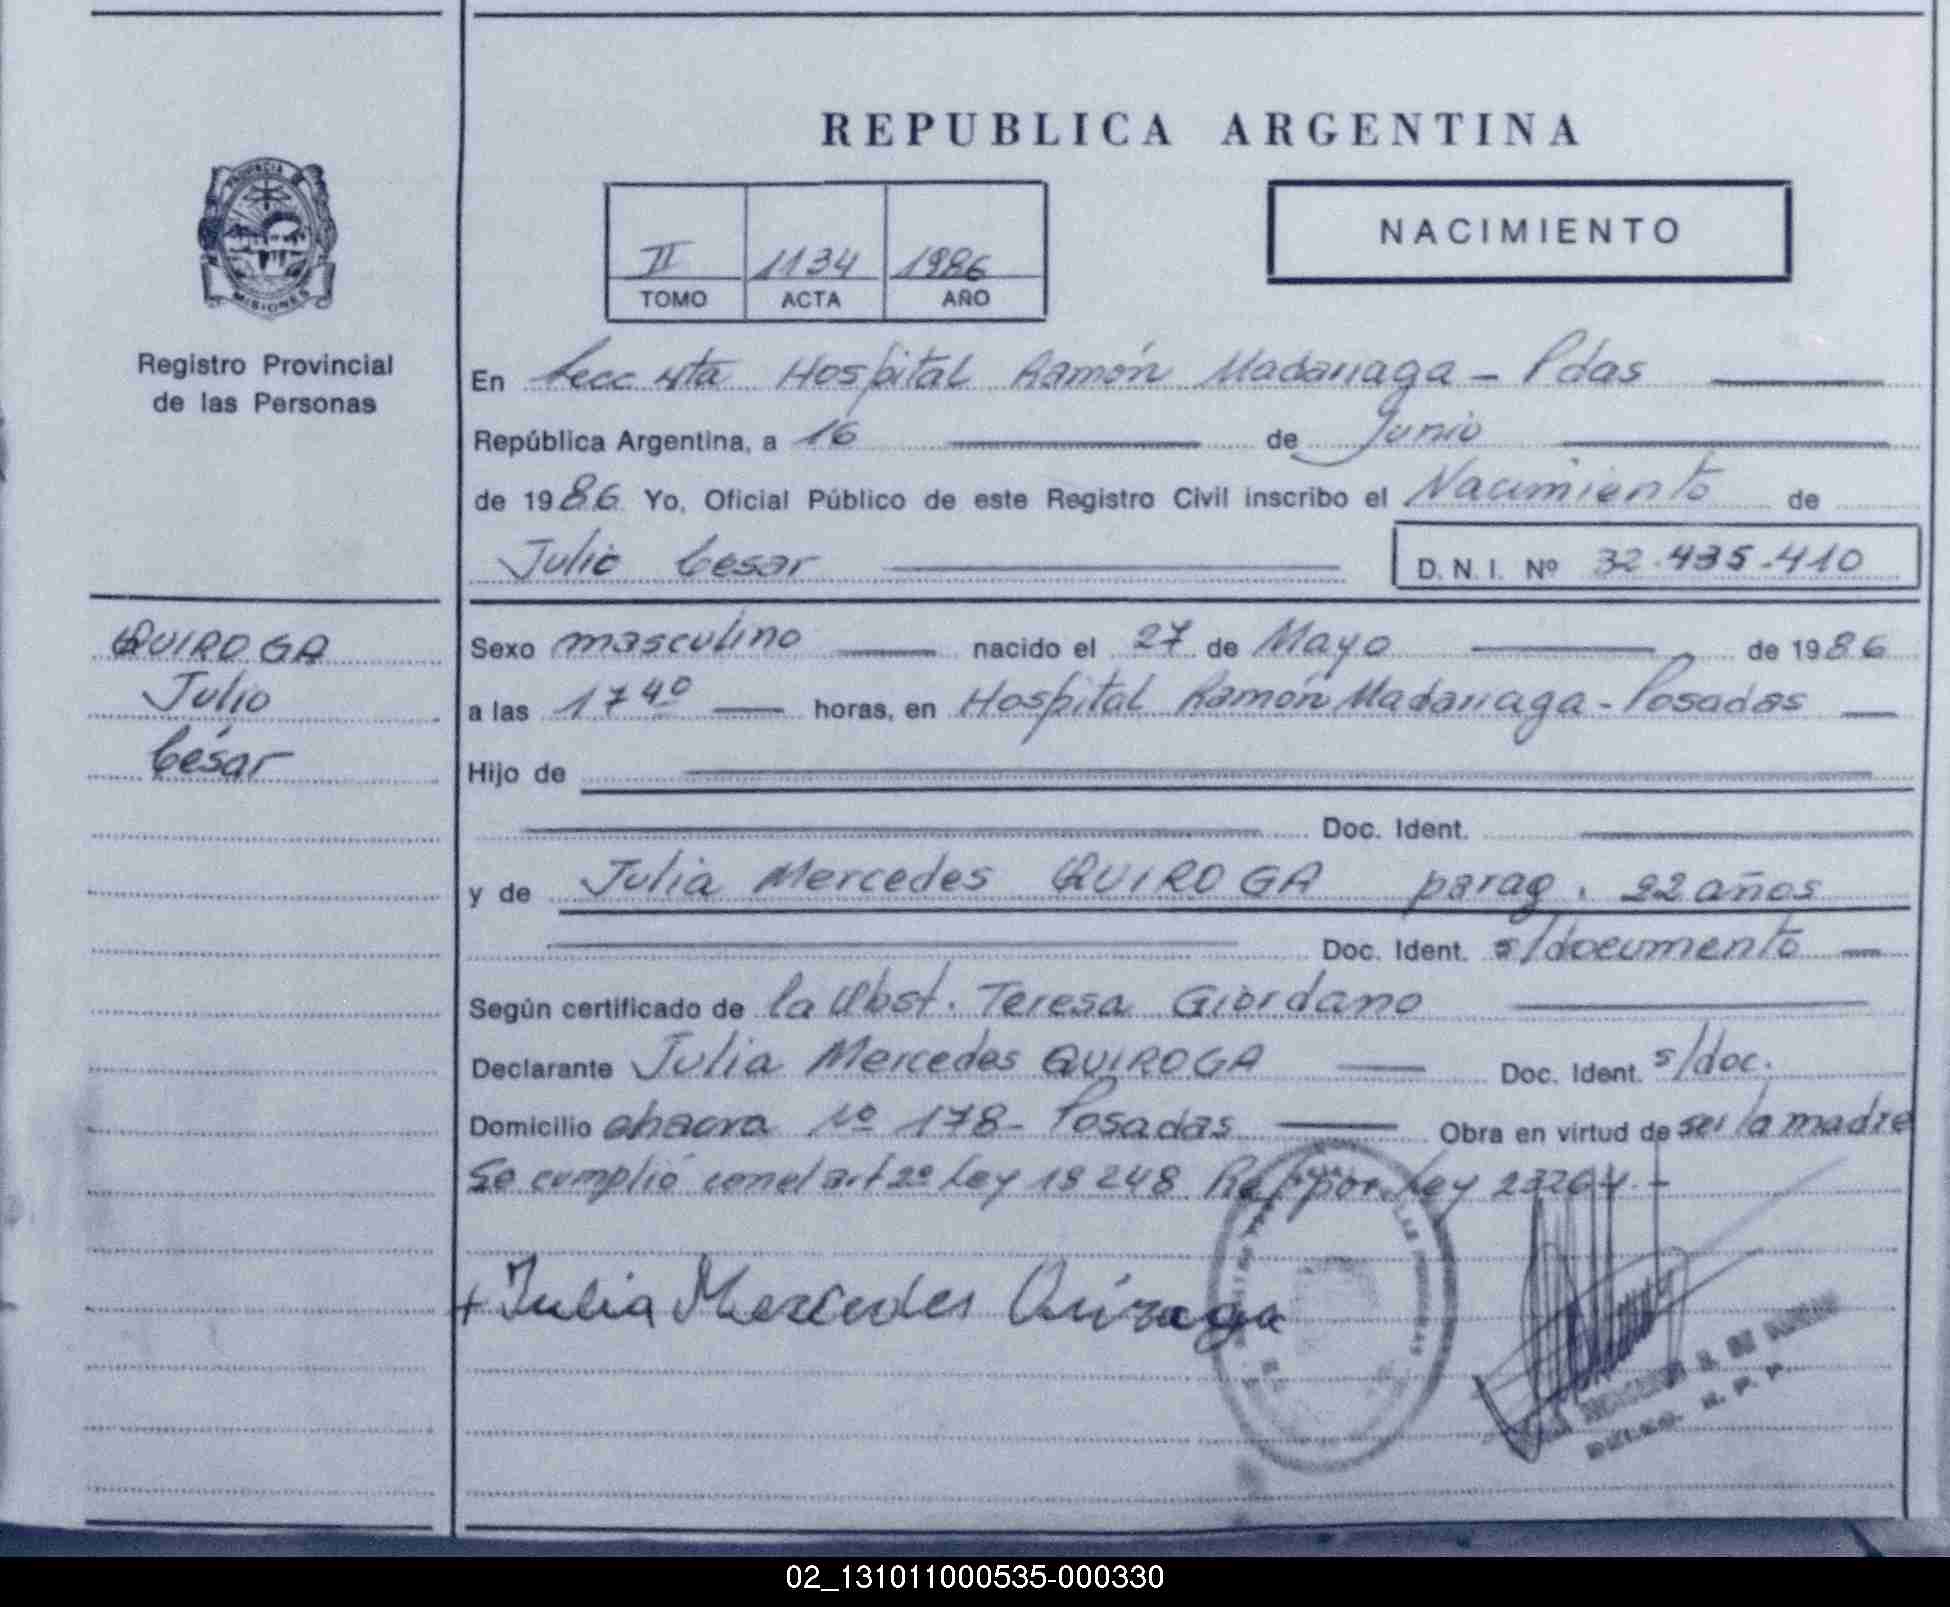 REPUBLICA ARGENTINA
PROVINCIA DE
MISIONES
Registro Provincial
de las Personas
II 1134 1986
TOMO ACTA AÑO
NACIMIENTO
En Secc 4ta Hospital Ramón Madariaga - Pdas
República Argentina, a 16 de Junio
de 1986 Yo, Oficial Público de este Registro Civil inscribo el Nacimiento de
Julio Cesar D. N. I. Nº 32.435.410
QUIROGA
Julio
César
Sexo masculino nacido el 27 de Mayo de 1986
a las 17 40 horas, en Hospital Ramón Madariaga - Posadas
Hijo de
Doc. Ident.
y de Julia Mercedes QUIROGA parag. 22 años
Doc. Ident. s/documento
Según certificado de la Obst. Teresa Giordano
Declarante Julia Mercedes QUIROGA Doc. Ident. s/doc.
Domicilio chacra Nº 178 - Posadas Obra en virtud de ser la madre
Se cumplió con el art 2º Ley 18248 Ref por Ley 23264.-
+ Julia Mercedes Quiroga
R. P. P.
02_131011000535-000330